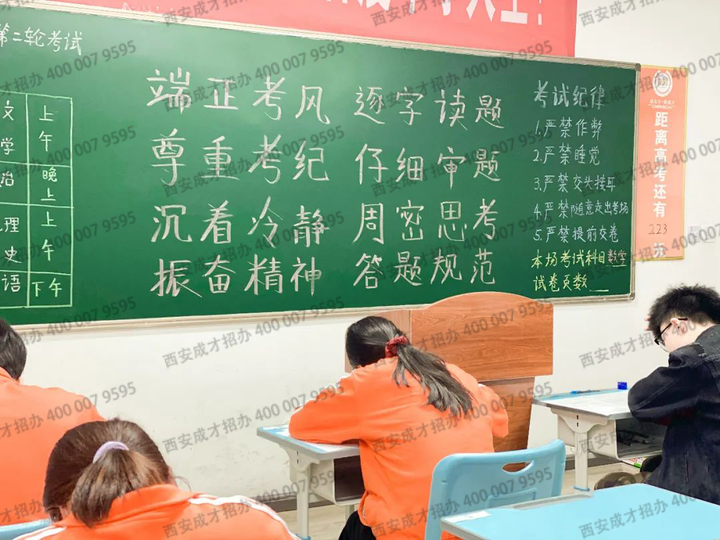 第二轮考试
文 上午
学
治 晚上
理 上午
史
语 下午
端正考风 逐字读题
尊重考纪 仔细审题
沉着冷静 周密思考
振奋精神 答题规范
考试纪律
1.严禁作弊
2.严禁睡觉
3.严禁交头接耳
4.严禁随意走出考场
5.严禁提前交卷
本场考试科目数学
试卷页数
距离高考还有
223
天
西安成才招办 400 007 9595